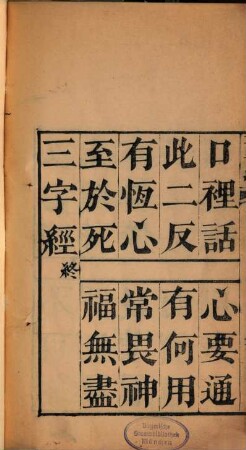 口裡話 心要通
此二反 有何用
有恆心 常畏神
至於死 福無盡
三字經 終